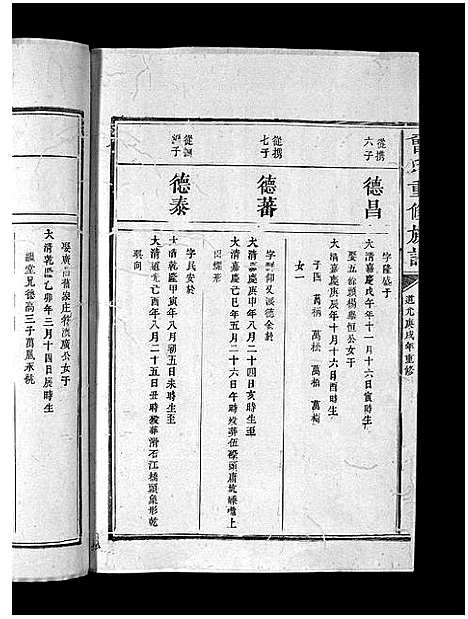 氏重修族譜
道光庚戌年重修
從携
六子
德昌
字隆盛于
大清嘉慶戊午年十一月十六日寅時生
娶五 頭楊舉恒公女于
大清嘉慶庚辰年十月十六日酉時生
子四 萬柄 萬松 萬柏 萬梅
女一
從携
七子
德蕃
字 仰 及 德余於
大清嘉慶庚申年八月二十四日亥時生
大清道光己巳年五月二十六日午時歿葬伍 頭 坑 嘴上
形
從
子
德泰
字民安於
大清乾隆甲寅年八月初五日未時生至
大清道光己酉年八月二十五日丑時歿葬滑石江橋頭象形乾
向
娶廣 泉庄 漢廣公女于
大清乾隆乙卯年三月十四日辰時生
繼堂兄德高三子萬鳳承祧